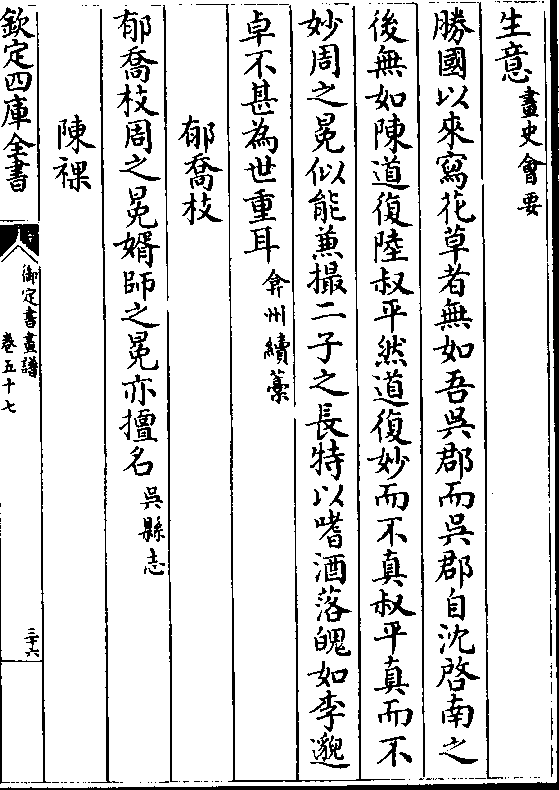 生意畫史會要
勝國以來寫花草者無如吾吳郡而吳郡自沈啓南之
後無如陳道復陸叔平然道復妙而不真叔平真而不
妙周之冕似能兼撮二子之長特以嗜酒落魄如李邈
卓不甚為世重耳弇州續藁
郁喬枝
郁喬枝周之冕婿師之冕亦擅名吳縣志
陳裸
欽定四庫全書
御定書畫譜
卷五十七
三十六